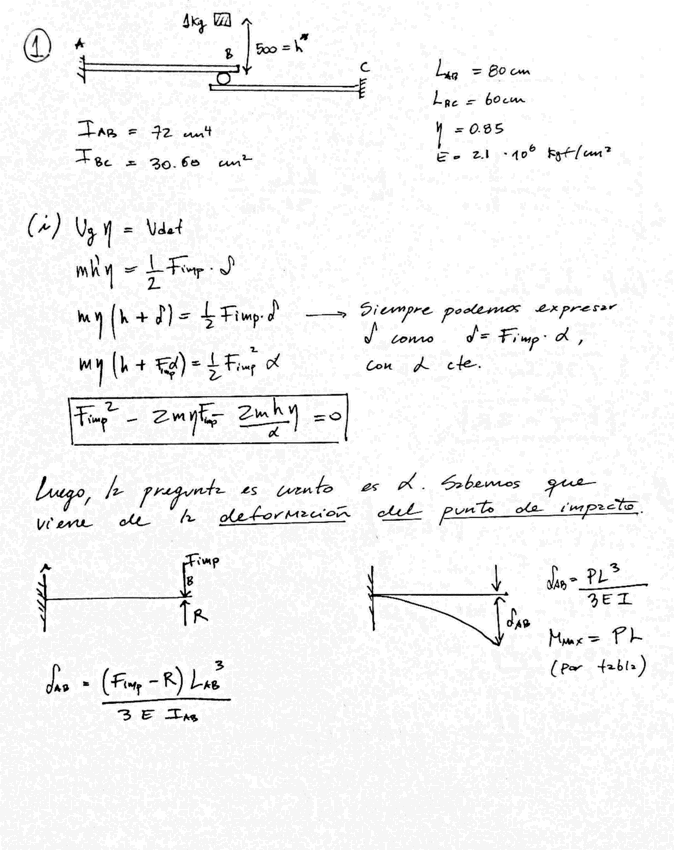 1
1kg
A
B
500 = h*
C
L_AB = 80 cm
L_BC = 60 cm
η = 0.85
E = 2.1 · 10⁶ kgf/cm²
I_AB = 72 cm⁴
I_BC = 30.60 cm²
(i) Ug η = Udef
mh'η = 1/2 Fimp · δ
mη (h + δ) = 1/2 Fimp · δ → Siempre podemos expresar
δ como δ = Fimp · α,
con α cte.
mη (h + Fimp α) = 1/2 Fimp² α
Fimp² - 2mηFimp - 2mhη/α = 0
Luego, la pregunta es cuanto es α. Sabemos que
viene de la deformación del punto de impacto.
A
Fimp
B
R
δ_AB
δ_AB = PL³/3EI
Mmax = PL
(por tabla)
δ_AB = (Fimp - R) L_AB³ / 3 E I_AB